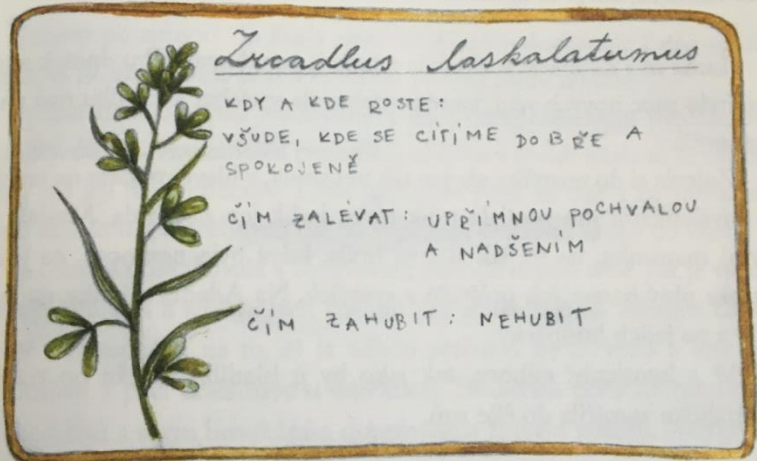 Zrcadlus laskalatumus
KDY A KDE ROSTE:
VŠUDE, KDE SE CÍTÍME DOBŘE A
SPOKOJENĚ
ČÍM ZALÉVAT: UPŘÍMNOU POCHVALOU
A NADŠENÍM
ČÍM ZAHUBIT: NEHUBIT